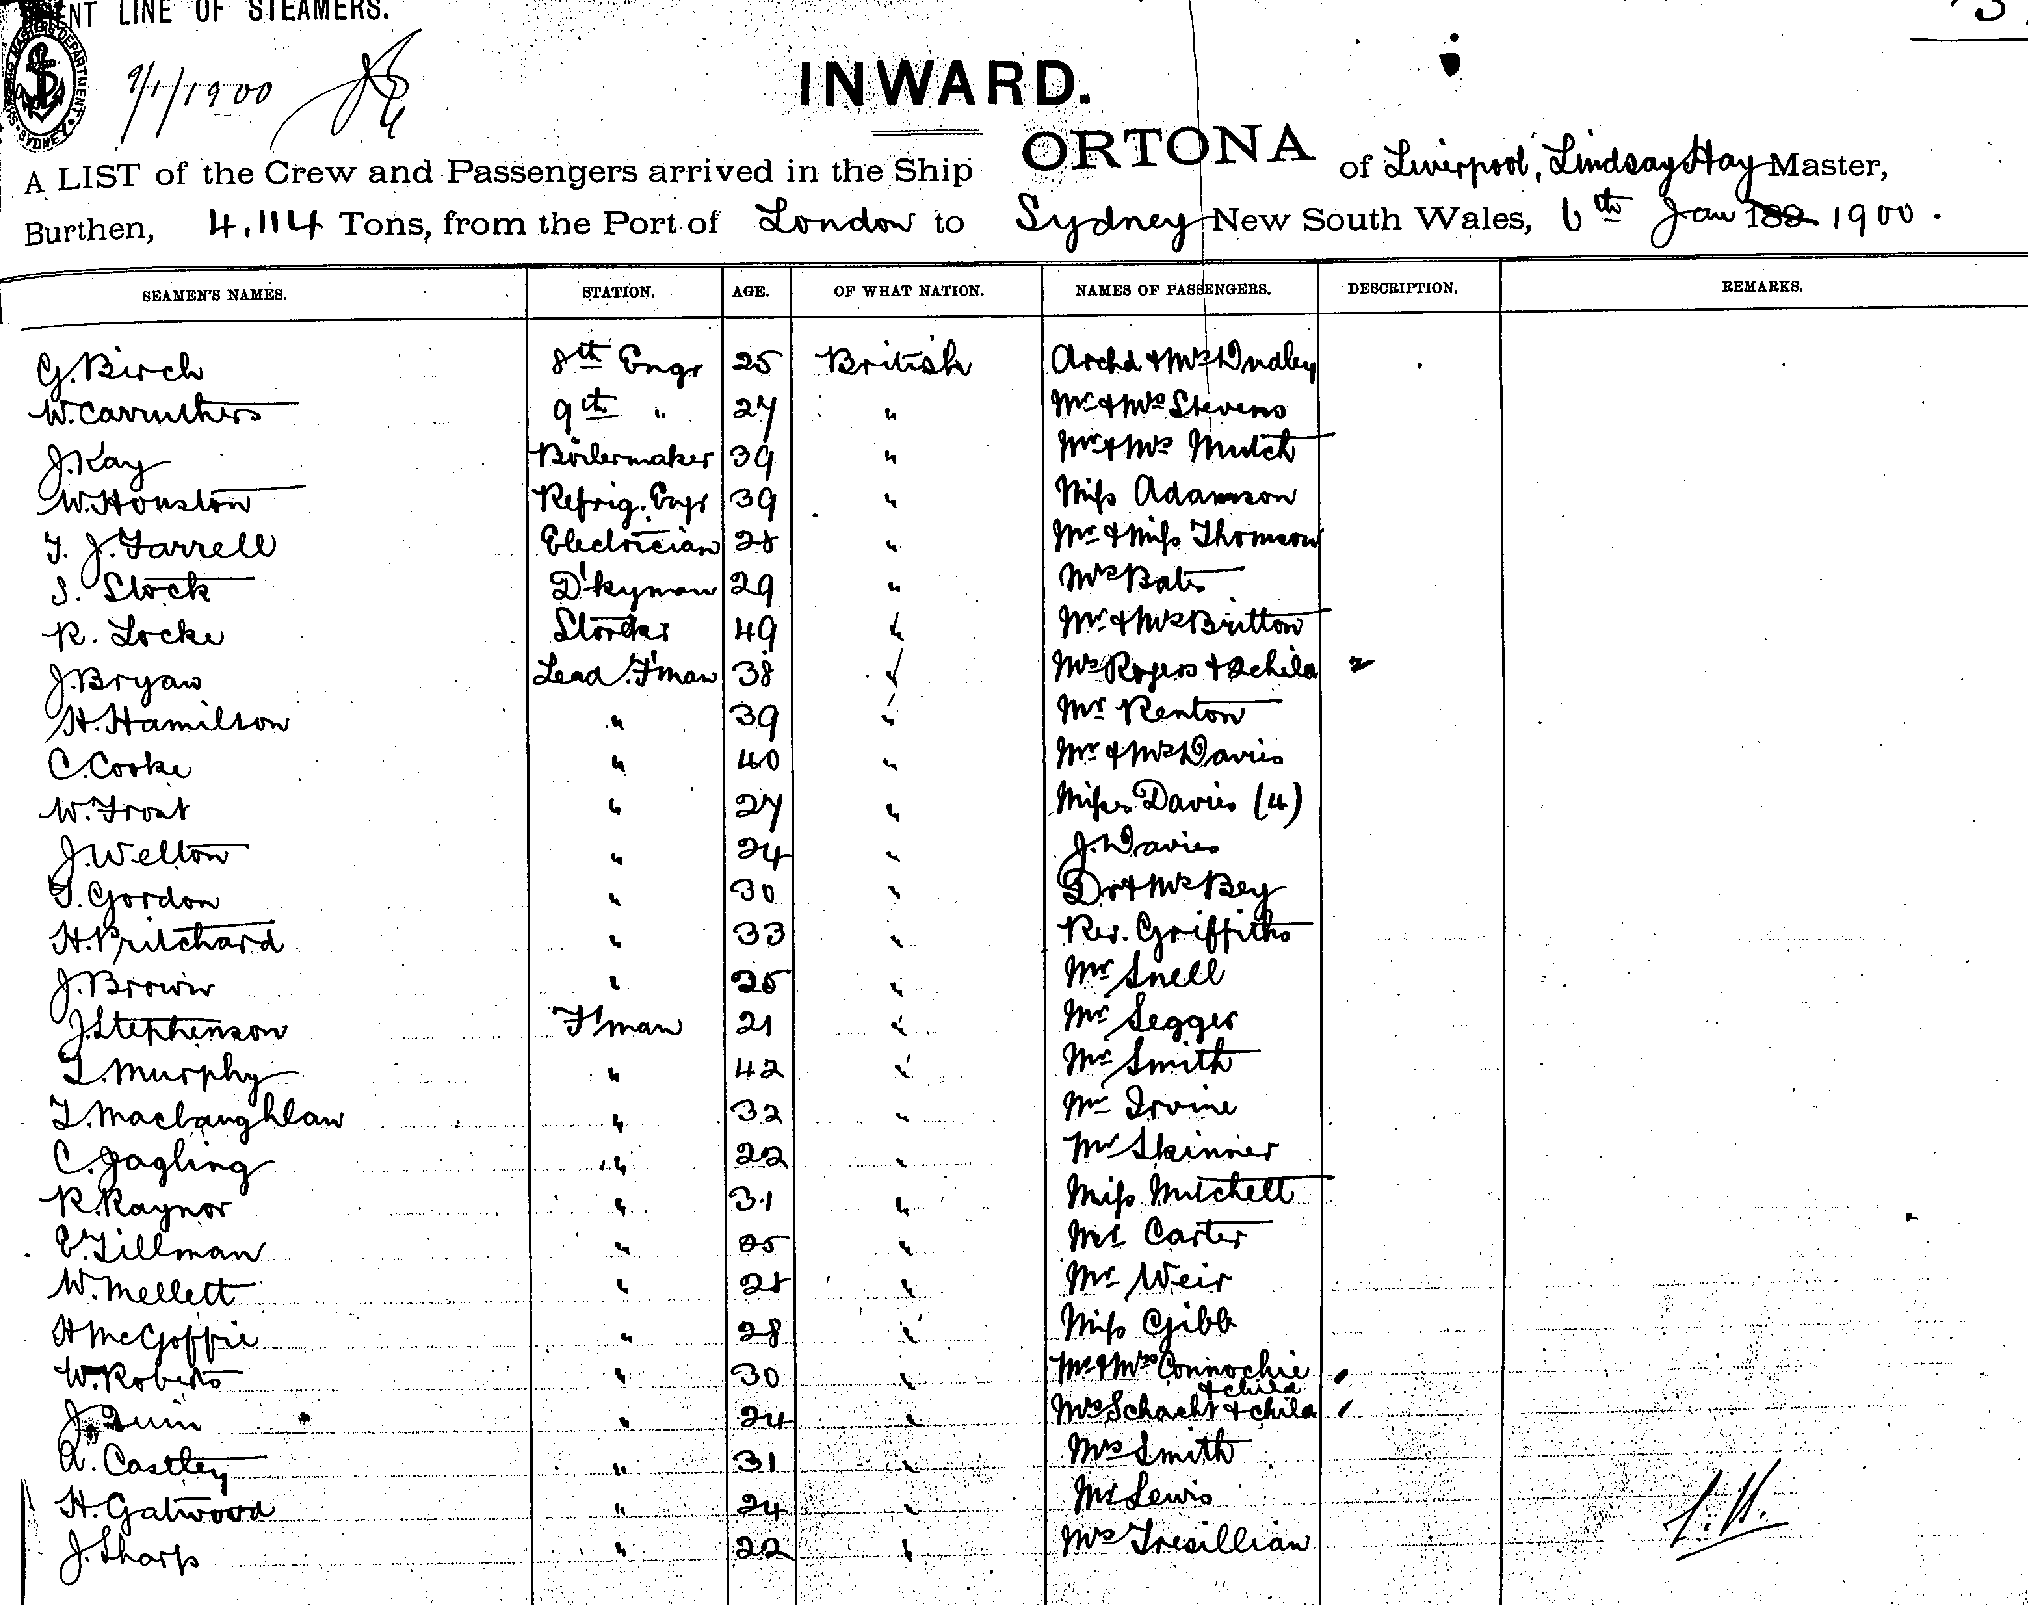 ENT LINE OF STEAMERS.
9/1/1900
INWARD.
A LIST of the Crew and Passengers arrived in the Ship ORTONA of Liverpool, Lindsay Hay Master,
Burthen, 4,114 Tons, from the Port of London to Sydney New South Wales, 6th Jan 189 1900.
SEAMEN'S NAMES. STATION. AGE. OF WHAT NATION. NAMES OF PASSENGERS. DESCRIPTION. REMARKS.
G. Birch 8th Engr 25 British Archd & Mrs Dudley
W. Carruthers 9th " 27 " Mr & Mrs Stevens
J. Kay Boilermaker 39 " Mr & Mrs Mutch
W. Houston Refrig. Engr 39 " Miss Adamson
T. J. Farrell Electrician 28 " Mr & Miss Thomson
S. Stock D'kyman 29 " Mrs Bate
R. Locke 49 " Mr & Mrs Britton
J. Bryan Lead. F'man 38 " Mrs Rogers & 2 child 2
H. Hamilton " 39 " Mr Renton
C. Cooke " 40 " Mr & Mrs Davies
W. Frost " 27 " Misses Davies (4)
J. Welton " 24 " J. Davies
T. Gordon " 30 " Dr & Mrs Bey
H. Pritchard " 33 " Rev. Griffiths
J. Brown " 25 " Mr Snell
J. Stephenson F'man 21 " Mr Segger
T. Murphy " 42 " Mr Smith
T. MacLaughlan " 32 " Mr Irvine
C. Jagling " 22 " Mr Skinner
R. Raynor " 31 " Miss Mitchell
Tillman " 25 " Mr Carter
W. Mellett " 28 " Mr Weir
H McGoffie " 28 " Miss Gibb
W. Roberts " 30 " Mr & Mrs Connochie
& child
J. Quin " 24 " Mrs Schacht & child
A. Castley " 31 " Mrs Smith
H. Gatwood " 24 " Mr Lewis
J. Sharp " 22 " Mrs Tresillian
L.H.